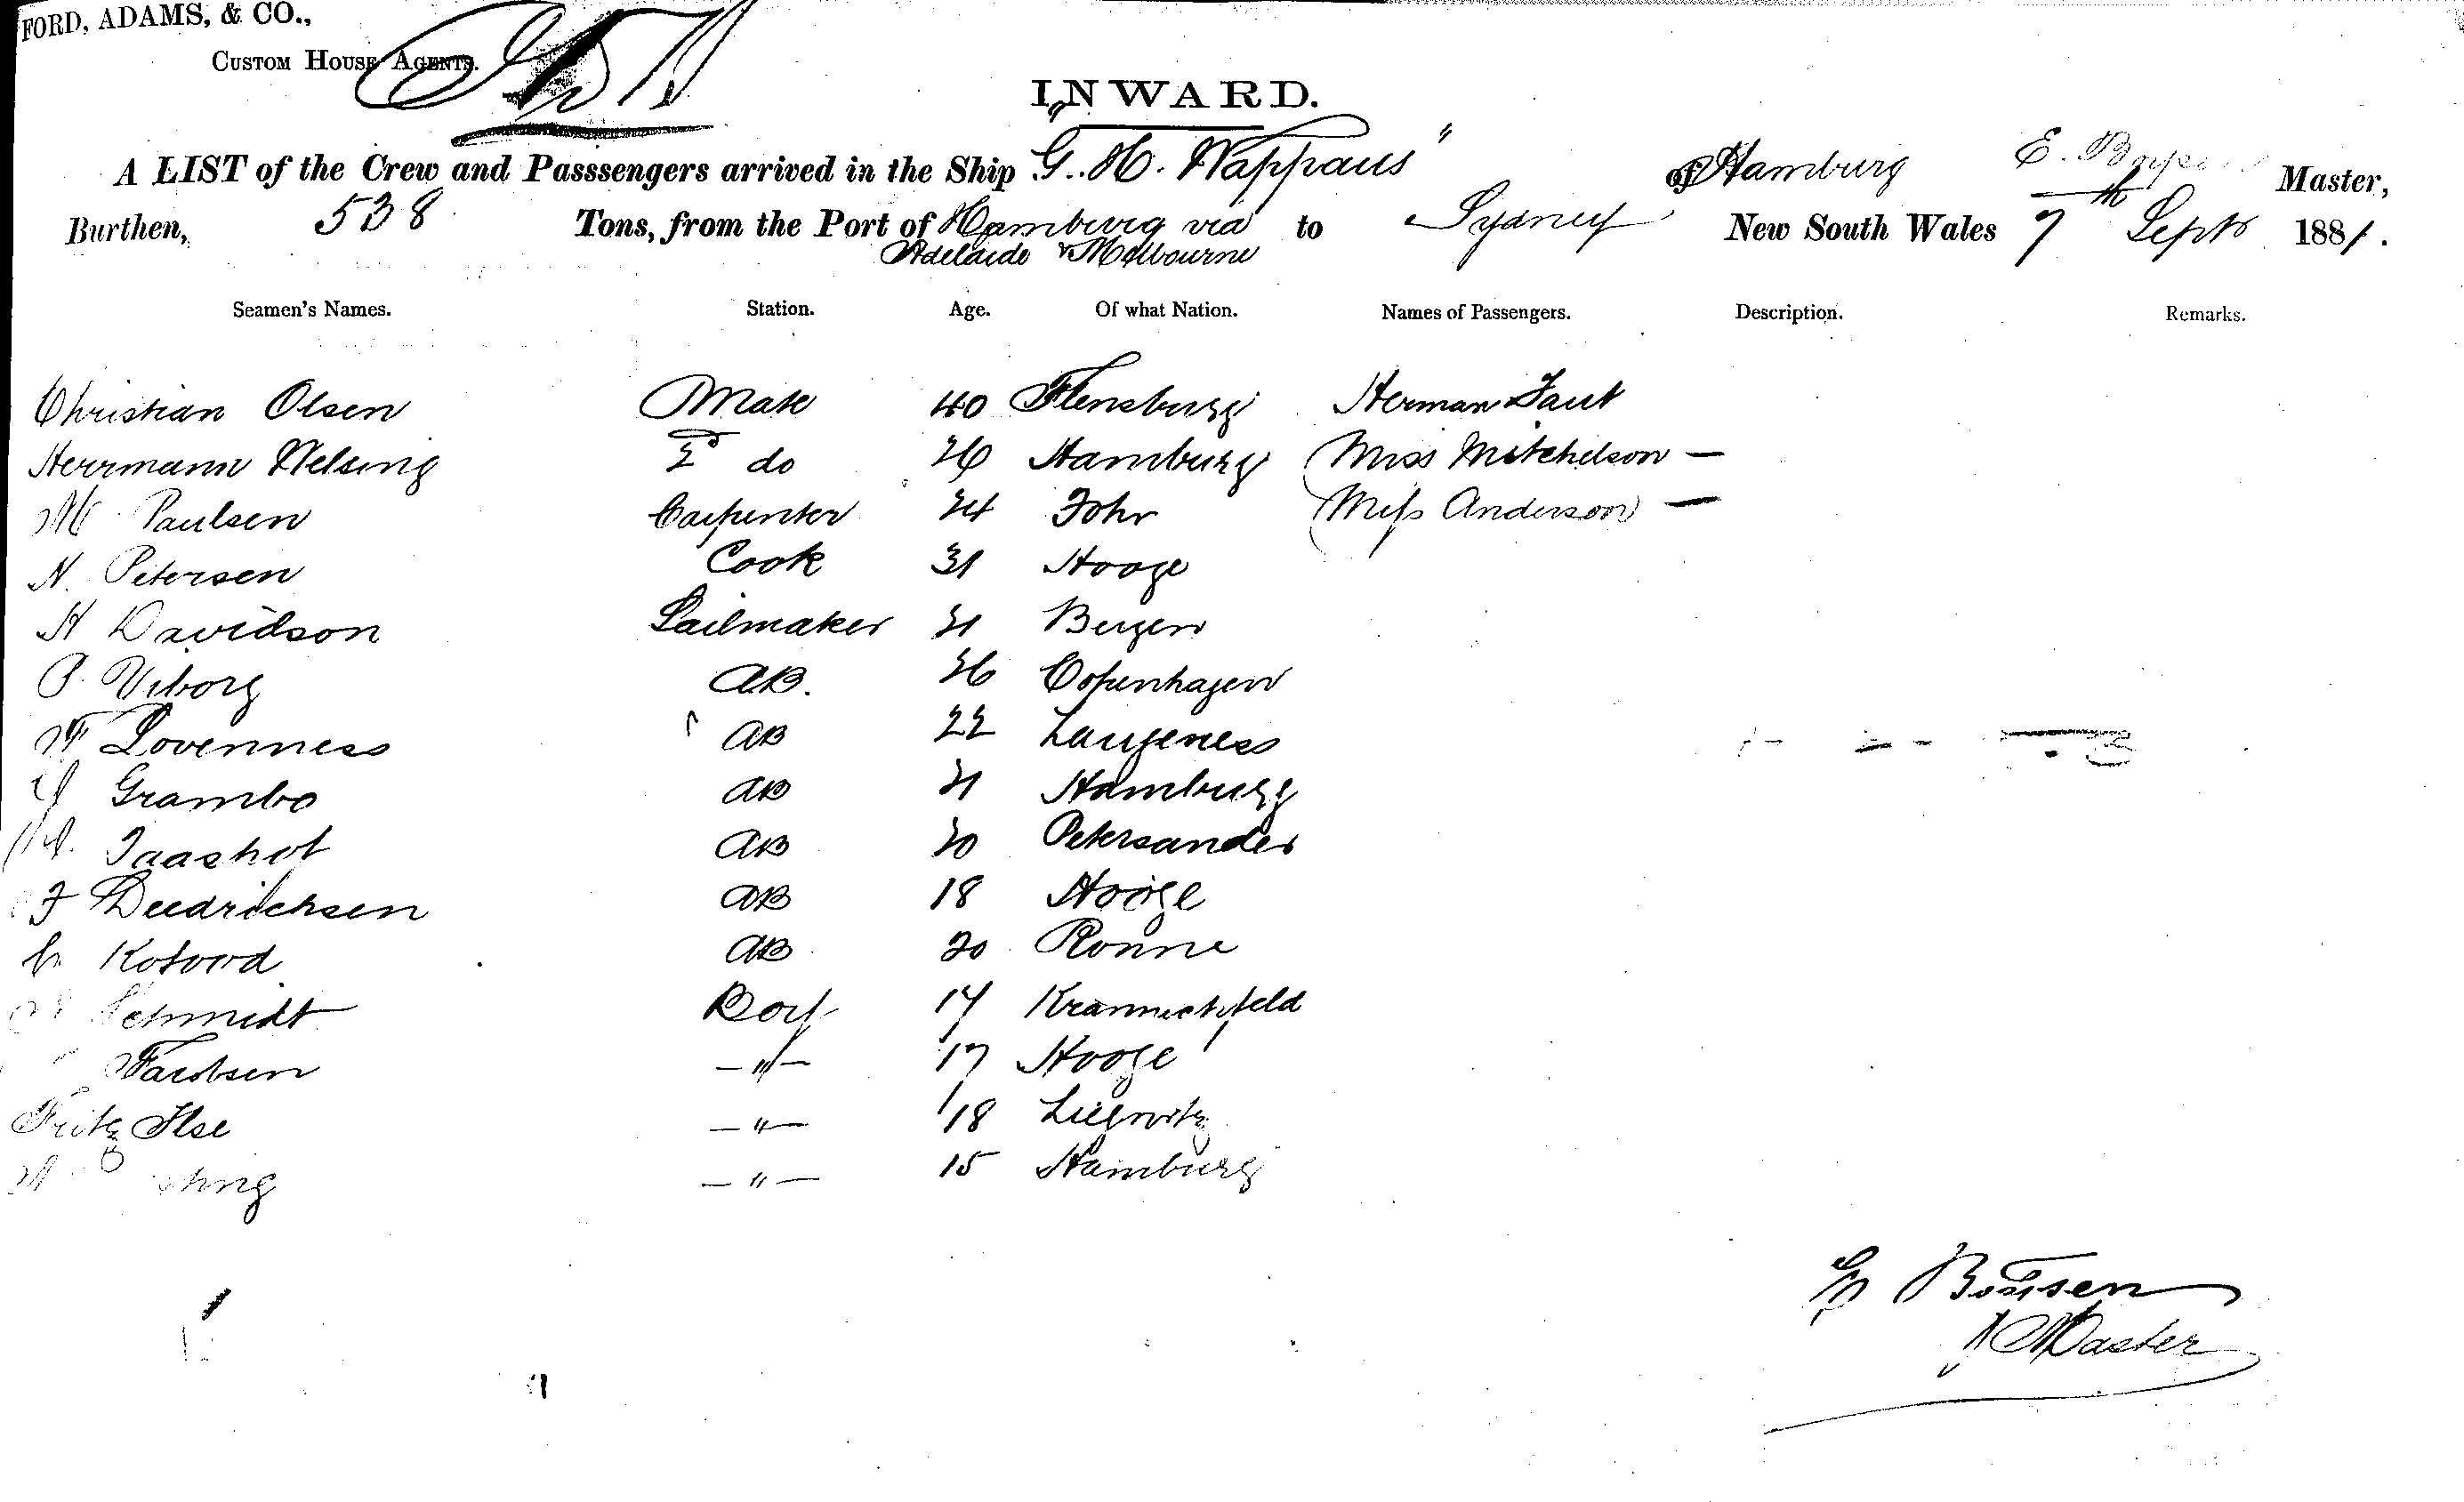 FORD, ADAMS, & CO.,
CUSTOM HOUSE AGENTS.
INWARD.
A LIST of the Crew and Passsengers arrived in the Ship "G. H. Wappaus" of Hamburg E. Master,
Burthen, 538 Tons, from the Port of Hamburg via to Sydney New South Wales 7th Sept 1881.
Adelaide & Melbourne
Seamen's Names. Station. Age. Of what Nation. Names of Passengers. Description. Remarks.
Christian Olsen Mate 40 Flensburg Herman Taut
Herrmann Welsing 2d do 26 Hamburg Miss Mitchelson —
M Paulsen Carpenter 24 Fohr Miss Anderson —
N. Petersen Cook 31 Hooge
H Davidson Sailmaker 21 Bergen
P. Viborg AB. 26 Copenhagen
F Lovenness AB 22 Langeness
Grambo AB 21 Hamburg
Taashot AB 20 Petersander
F Diedrichsen AB 18 Hooge
Kofoord AB 20 Ronne
Schmidt Boy 17 Krannichfeld
Jacobsen —"— 17 Hooge
Fritz Ilse —"— 18 Liegnitz
—"— 15 Hamburg
Boysen
Master